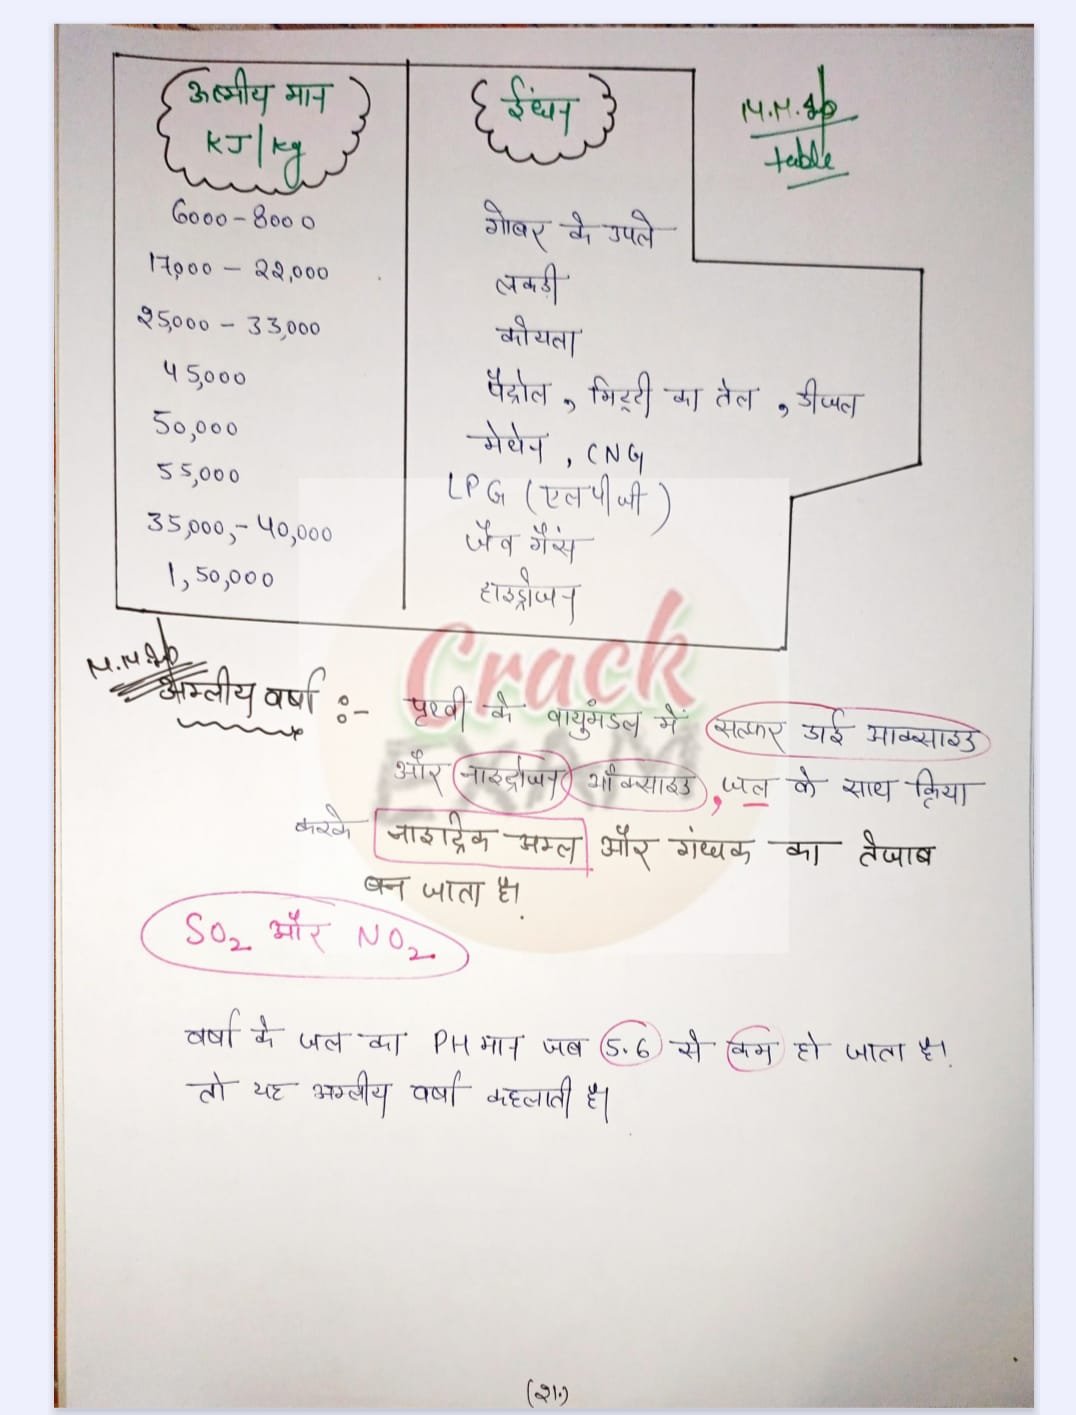 ऊष्मीय मान
KJ/kg
ईंधन
M.M.Imp
table
6000-8000 गोबर के उपले
17,000 - 22,000 लकड़ी
25,000 - 33,000 कोयला
45,000 पैट्रोल, मिट्टी का तेल, डीजल
50,000 मेथेन, CNG
55,000 LPG (एलपीजी)
35,000,- 40,000 जैव गैस
1,50,000 हाइड्रोजन
M.M.Imp
अम्लीय वर्षा :- पृथ्वी के वायुमंडल में सल्फर डाई आक्साइड
और नाइट्रोजन ऑक्साइड, जल के साथ क्रिया
करके नाइट्रिक अम्ल और गंधक का तेजाब
बन जाता है।
SO2 और NO2
वर्षा के जल का PH मान जब 5.6 से कम हो जाता है।
तो यह अम्लीय वर्षा कहलाती है।
Crack
EXAM
(21.)